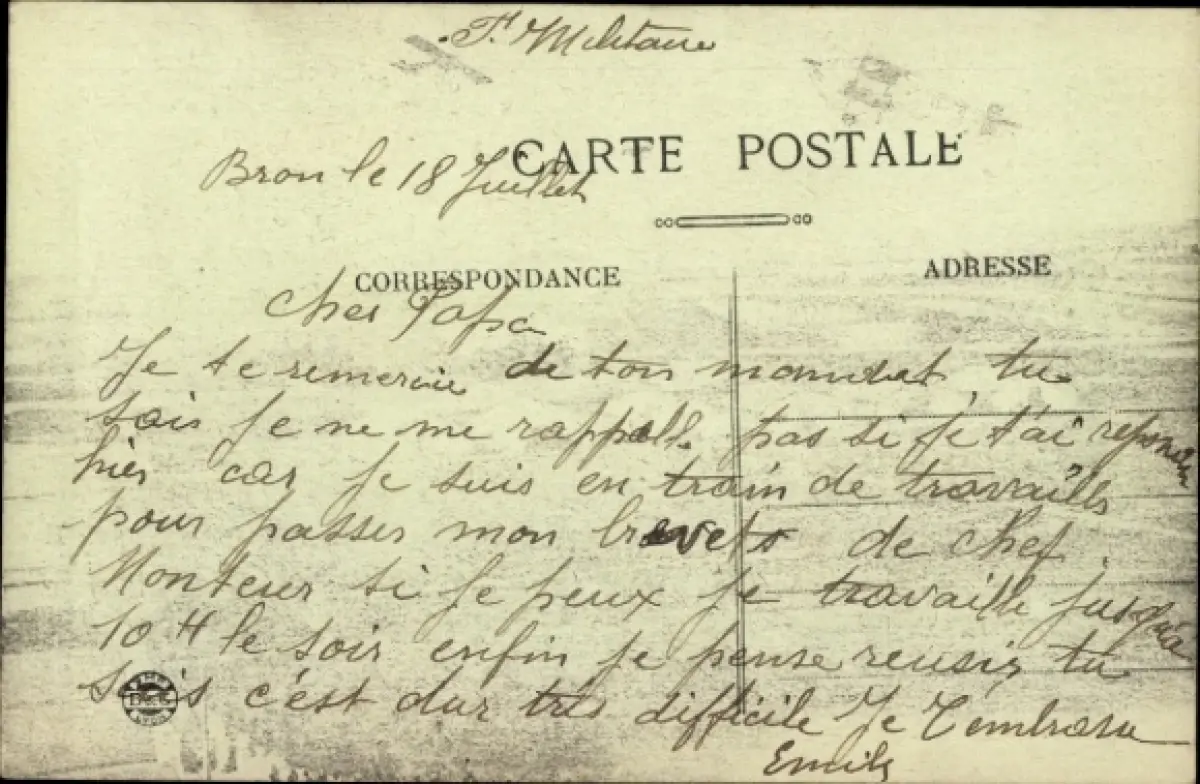 Ft Militaire
CARTE POSTALE
Bron le 18 Juillet
CORRESPONDANCE
ADRESSE
Cher Papa
Je te remercie de ton mandat tu
sais je ne me rappelle pas si je t'ai repondu
hier car je suis en train de travailler
pour passer mon brevets de Chef
Monteur si je peux je travaille jusqu'a
10 H le soir enfin je pense reusir, tu
sais c'est dur très difficile Je t'embrasse
Emile